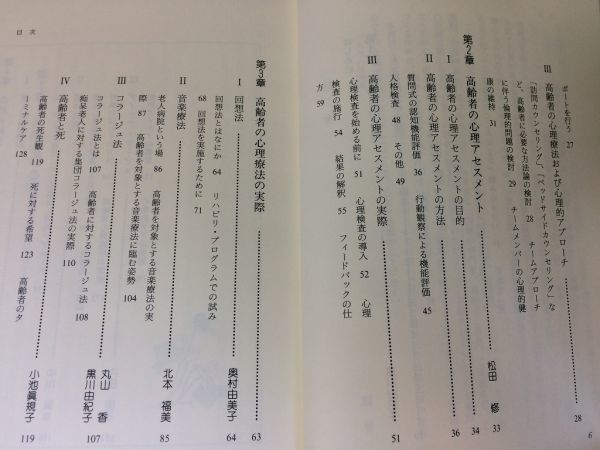 ポートを行う 27
Ⅲ 高齢者の心理療法および心理的アプローチ 28
「訪問カウンセリング」、「ベッドサイドカウンセリング」な
ど、高齢者に必要な方法論の検討 28 チームアプローチ
に伴う倫理的問題の検討 29 チームメンバーの心理的健
康の維持 31
第2章 高齢者の心理アセスメント 松田 修 33
Ⅰ 高齢者の心理アセスメントの目的 34
Ⅱ 高齢者の心理アセスメントの方法 36
質問式の認知機能評価 36 行動観察による機能評価 45
人格検査 48 その他 49
Ⅲ 高齢者の心理アセスメントの実際 51
心理検査を始める前に 51 心理検査の導入 52 心理
検査の施行 54 結果の解釈 55 フィードバックの仕
方 59
6
目次
第3章 高齢者の心理療法の実際 63
Ⅰ 回想法 奥村由美子 64
回想法とはなにか 64 リハビリ・プログラムでの試み
68 回想法を実施するために 71
Ⅱ 音楽療法 北本 福美 85
老人病院という場 86 高齢者を対象とする音楽療法の実
際 87 高齢者を対象とする音楽療法に臨む姿勢 104
Ⅲ コラージュ法 丸山 香 黒川由紀子 107
コラージュ法とは 107 高齢者に対するコラージュ法 108
痴呆老人に対する集団コラージュ法の実際 110
Ⅳ 高齢者と死 小池眞規子 119
高齢者の死生観 119 死に対する希望 123 高齢者のタ
ーミナルケア 128